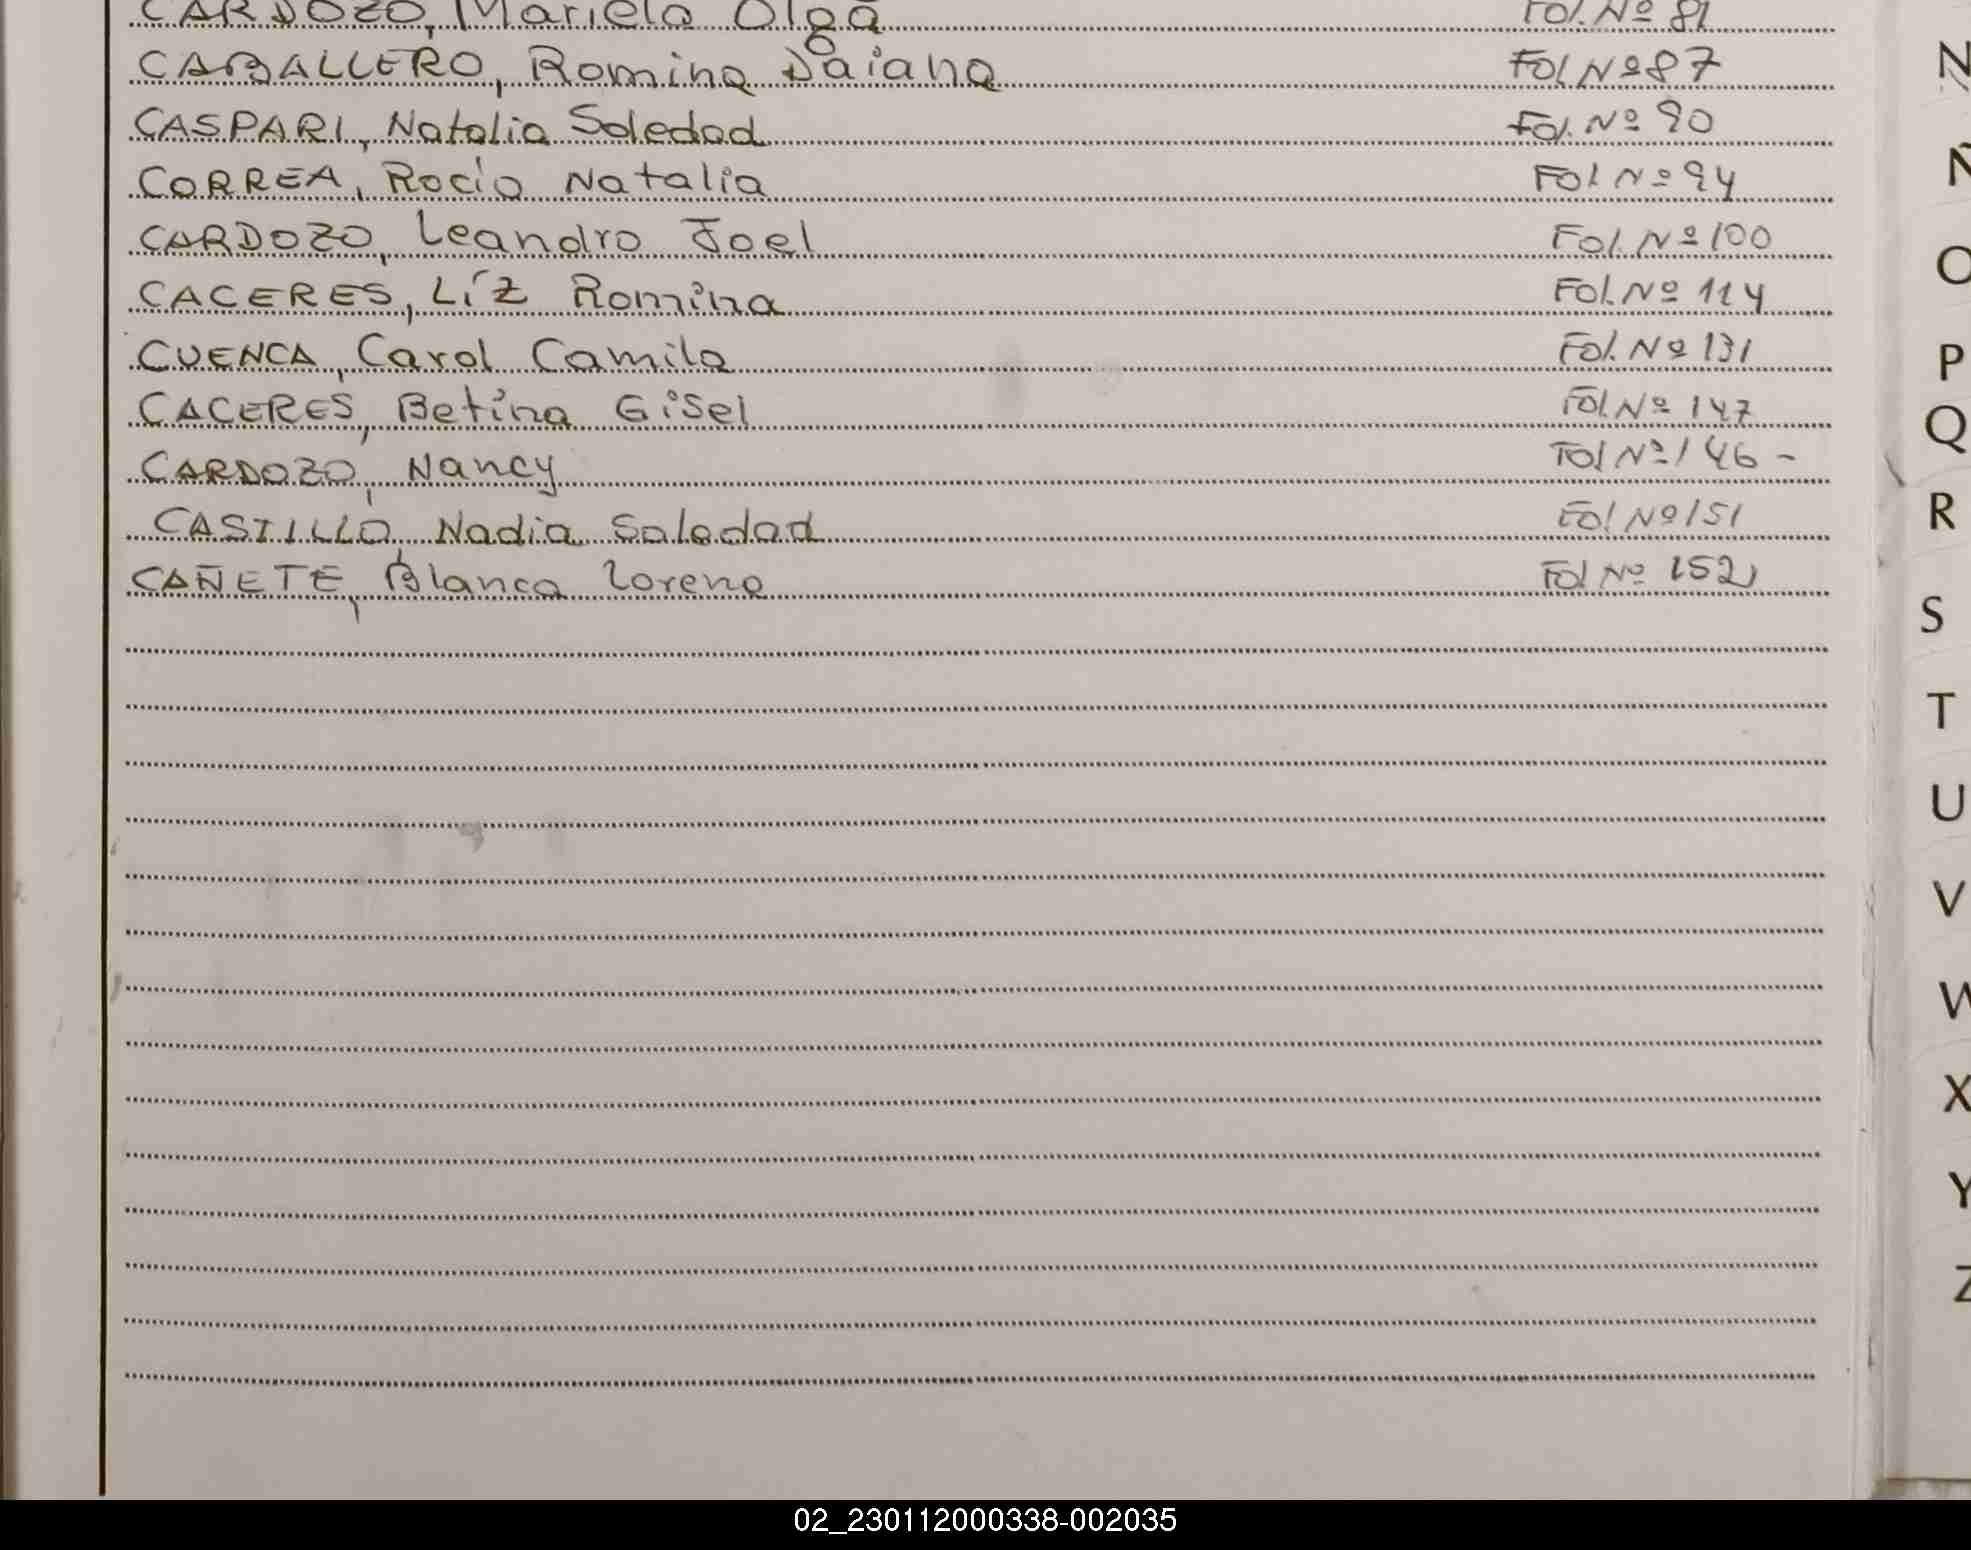 CARDOZO, Mariela Olga Fol. Nº 81
CABALLERO, Romina Daiana Fol Nº 87
CASPARI, Natalia Soledad Fol. Nº 90
CORREA, Rocío Natalia Fol Nº 94
CARDOZO, Leandro Joel Fol. Nº 100
CACERES, Líz Romina Fol. Nº 114
CUENCA, Carol Camila Fol. Nº 131
CACERES, Betina Gisel Fol. Nº 147
CARDOZO, Nancy Fol Nº 146 -
CASTILLO, Nadia Soledad Fol Nº 151
CAÑETE, Blanca Lorena Fol Nº 152
N
Ñ
O
P
Q
R
S
T
U
V
W
X
Y
Z
02_230112000338-002035